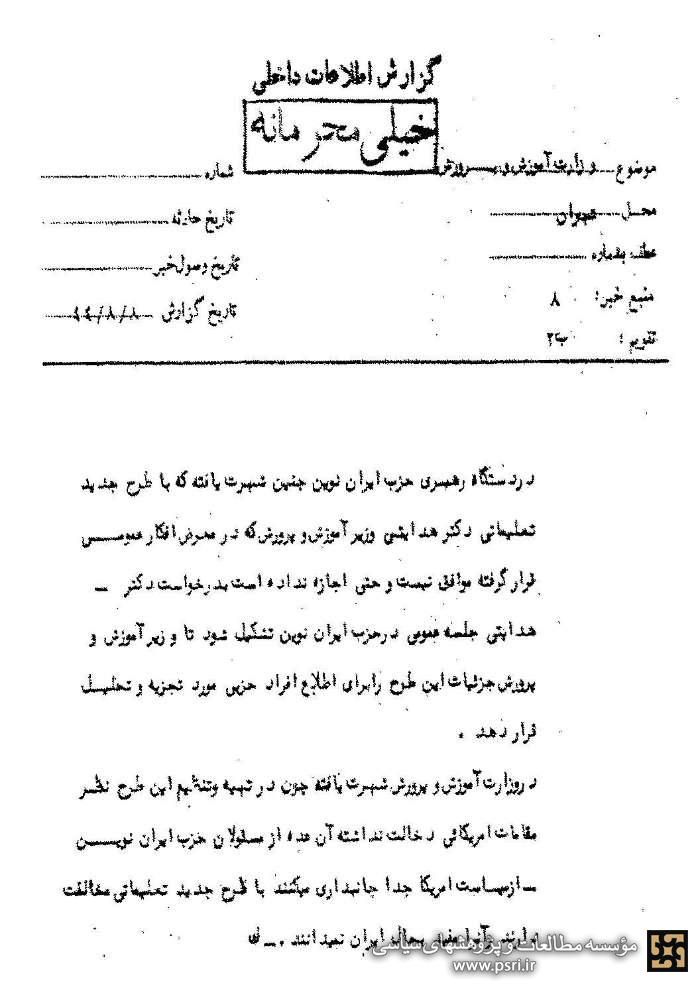 گزارش اطلاعات داخلی
خیلی محرمانه
موضوع وزارت آموزش و پرورش
شماره
محل تهران
تاریخ حادثه
عطف بشماره
تاریخ وصول خبر
منبع خبر: ۸
تاریخ گزارش ۴۴/۸/۸
تقویم: ب۲
در دستگاه رهبری حزب ایران نوین چنین شهرت یافته که با طرح جدید
تعلیماتی دکتر هدایتی وزیر آموزش و پرورش که در معرض افکار عمومی
قرار گرفته موافق نیست و حتی اجازه نداده است بدرخواست دکتر –
هدایتی جلسه عمومی در حزب ایران نوین تشکیل شود تا وزیر آموزش و
پرورش جزئیات این طرح را برای اطلاع افراد حزبی مورد تجزیه و تحلیل
قرار دهد .
در وزارت آموزش و پرورش شهرت یافته چون در تهیه وتنظیم این طرح نظر
مقامات امریکائی دخالت نداشته آن عده از مسئولان حزب ایران نوین
– ازسیاست امریکا جدا جانبداری میکنند با طرح جدید تعلیماتی مخالفت
دارند و آنرا مفید بحال ایران نمیدانند . – ف
مؤسسه مطالعات و پژوهشهای سیاسی
www.psri.ir